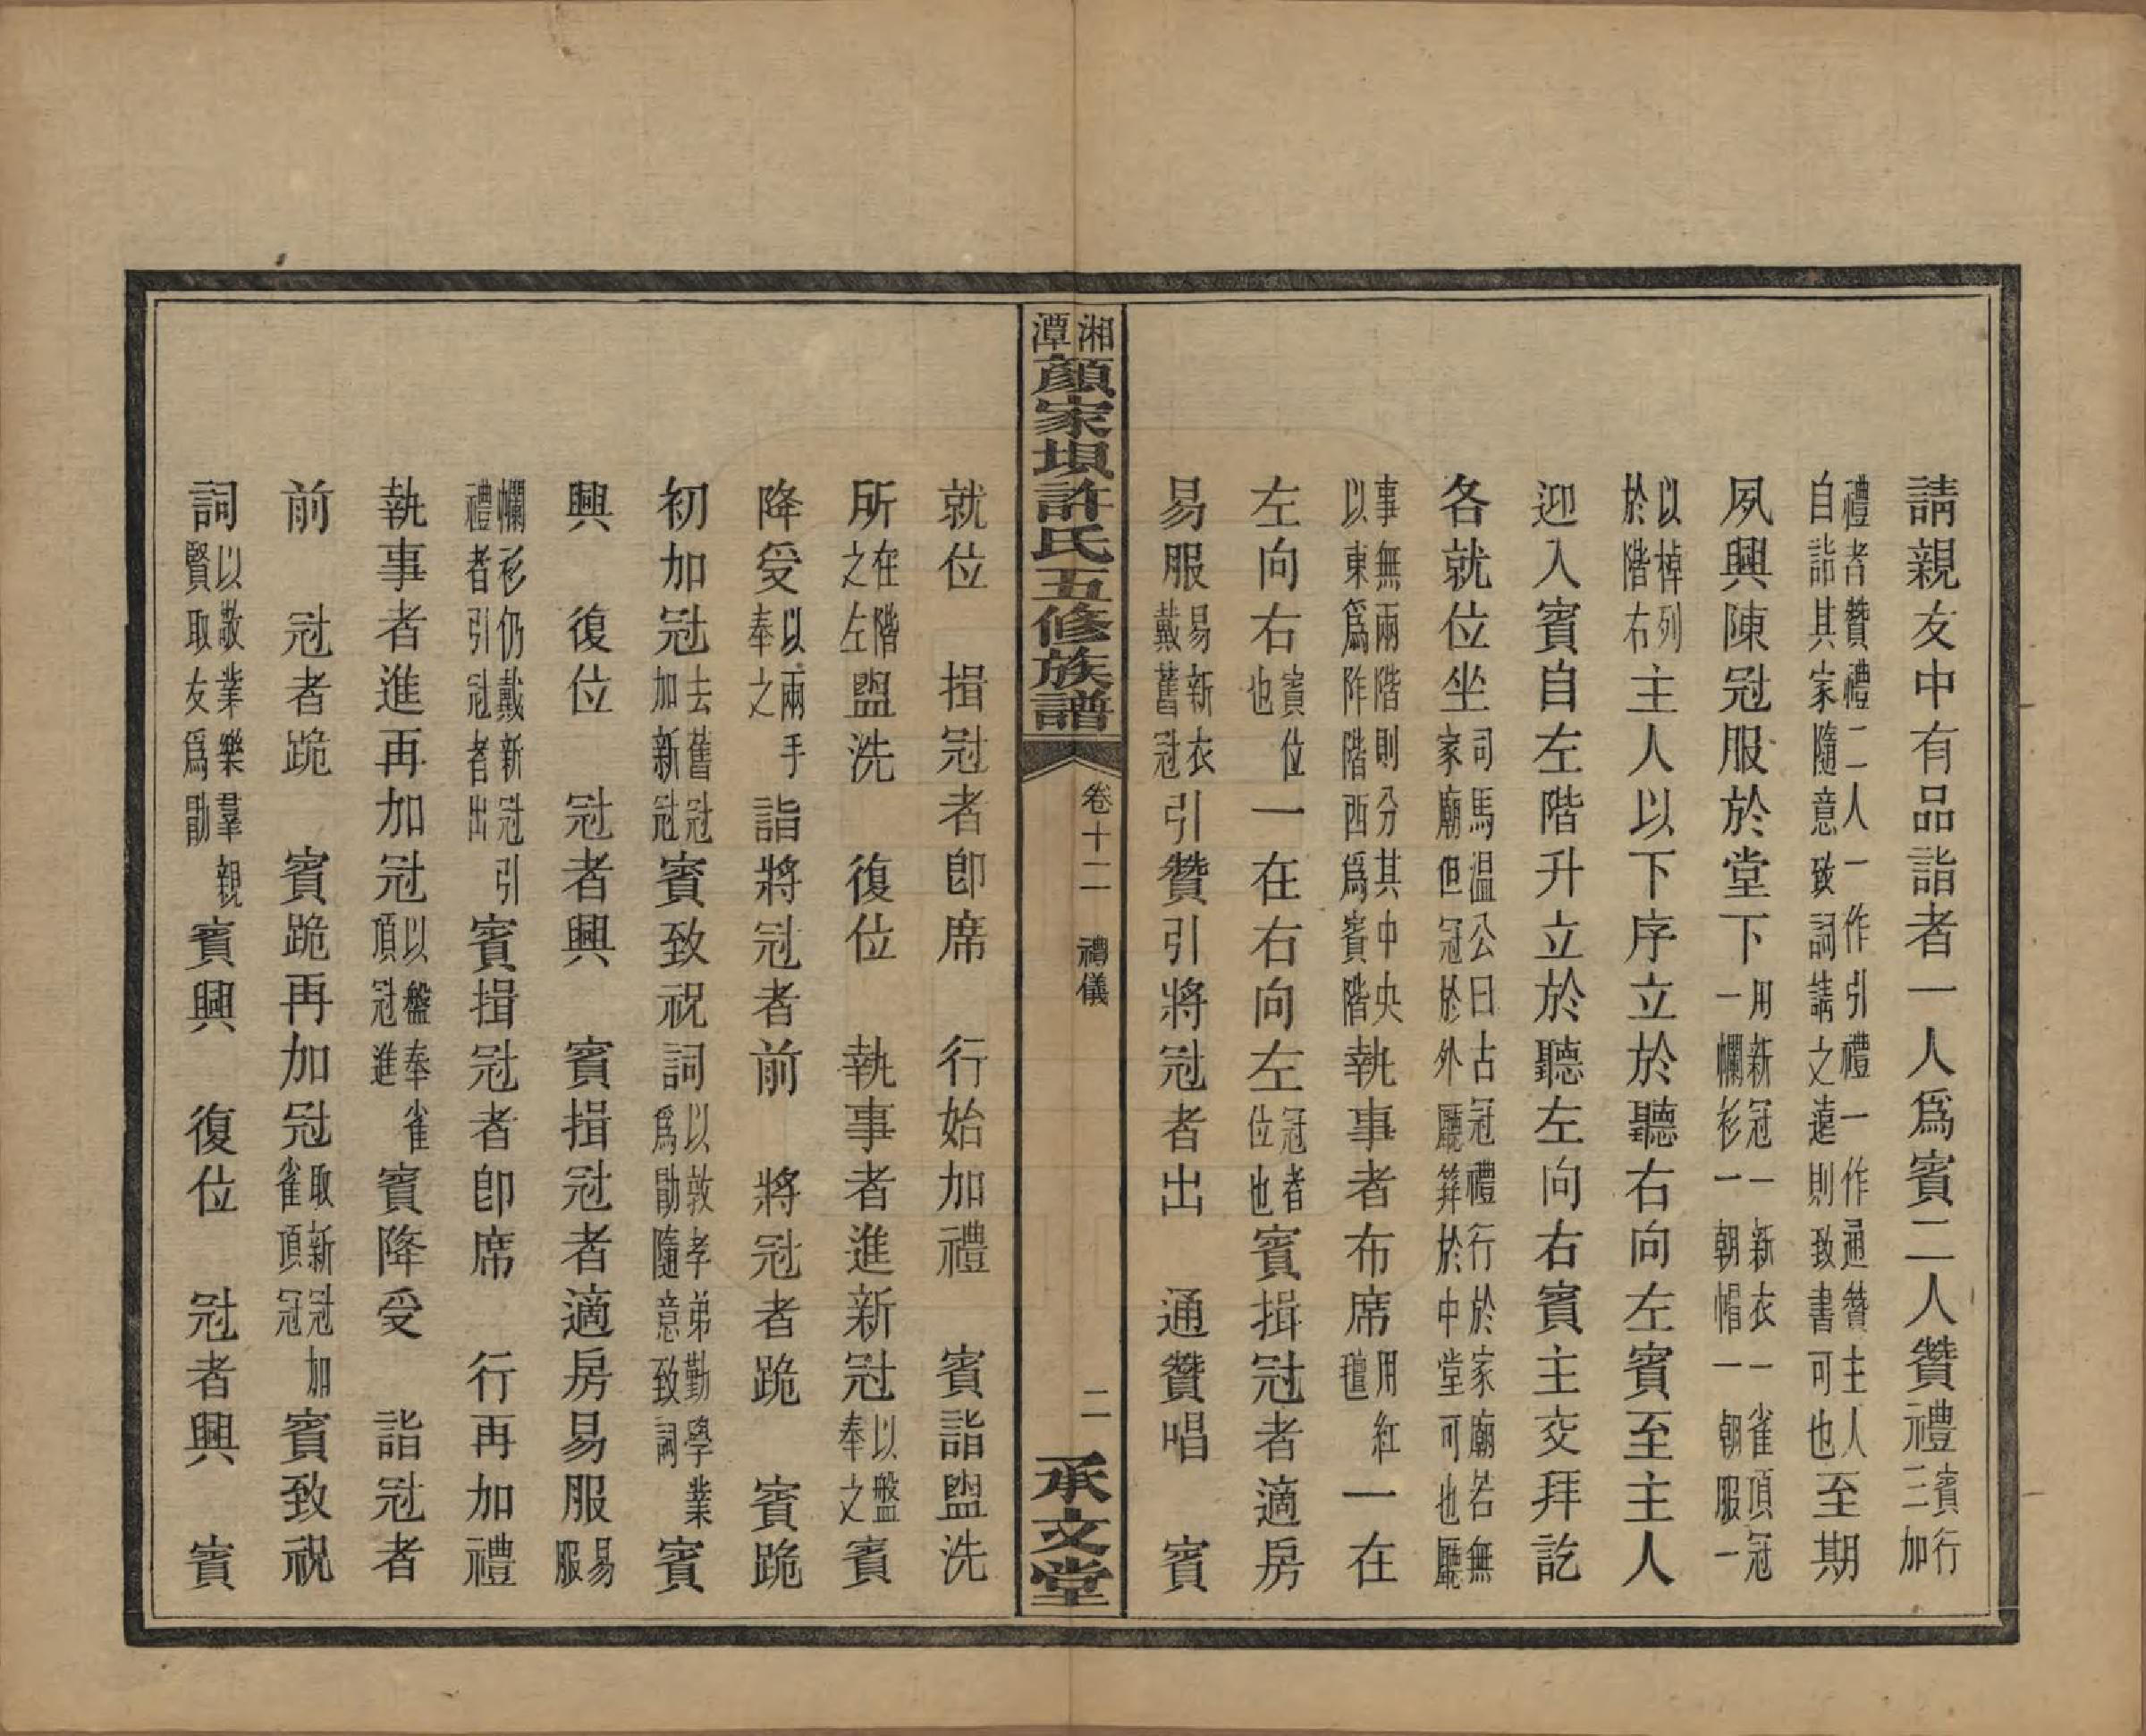 請親友中有品詣者一人爲賓二人贊禮賓行三加
禮者贊禮二人一作引禮一作通贊主人自詣其家隨意致詞請之遠則致書可也至期
夙興陳冠服於堂下用新冠一新衣一雀頂冠一襴衫一朝帽一朝服一
以棹列於階右主人以下序立於聽右向左賓至主人
迎入賓自左階升立於聽左向右賓主交拜訖
各就位坐司馬温公曰古冠禮行於家廟若無家廟但冠於外廳笄於中堂可也廳
事無兩階則分其中央以東爲阼階西爲賓階執事者布席用紅氊一在
左向右賓位也一在右向左冠者位也賓揖冠者適房
易服易新衣戴舊冠引贊引將冠者出　通贊唱　賓
湘潭顏家壩許氏五修族譜　卷十二　禮儀　二　承文堂
就位　揖冠者卽席　行始加禮　賓詣盥洗
所在階之左盥洗　復位　執事者進新冠以盤奉之賓
降受以兩手奉之詣將冠者前　將冠者跪　賓跪
初加冠去舊冠加新冠賓致祝詞以敦孝弟勤學業爲勖隨意致詞賓
興　復位　冠者興　賓揖冠者適房易服易服
襴衫仍戴新冠引禮者引冠者出賓揖冠者卽席　行再加禮
執事者進再加冠以盤奉雀頂冠進賓降受　詣冠者
前　冠者跪　賓跪再加冠取新冠加雀頂冠賓致祝
詞以敬業樂羣親賢取友爲勖賓興　復位　冠者興　賓